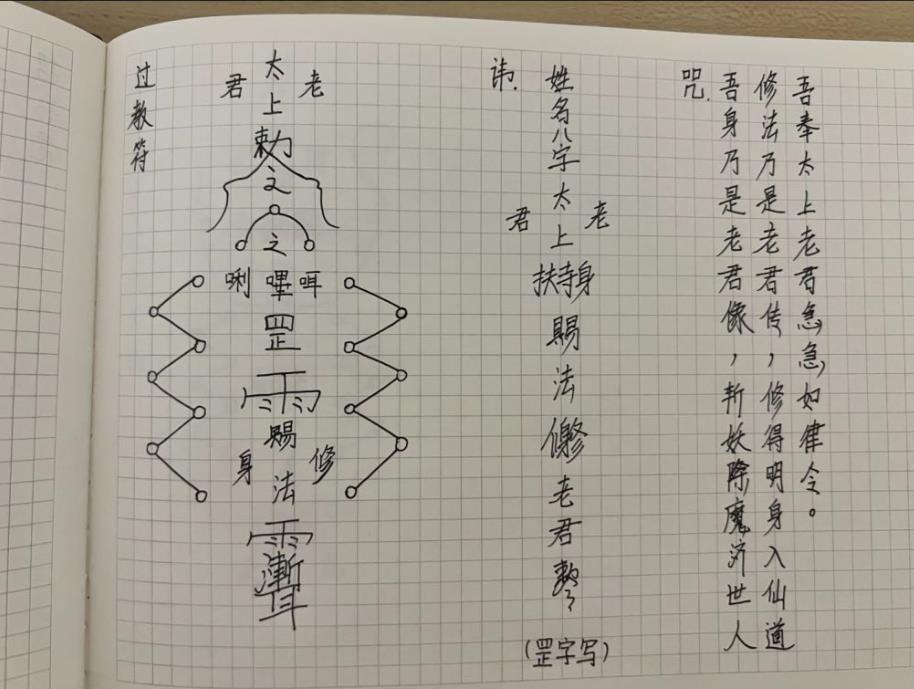 过教符
太上
老君
敕
令
之
唎嗶咡
罡
雨
賜法
身
修
讳.
姓名八字太上
老君
賜法
老君
(罡字写)
咒.
吾身乃是老君像，斩妖除魔济世人
修法乃是老君传，修得明身入仙道
吾奉太上老君急急如律令。